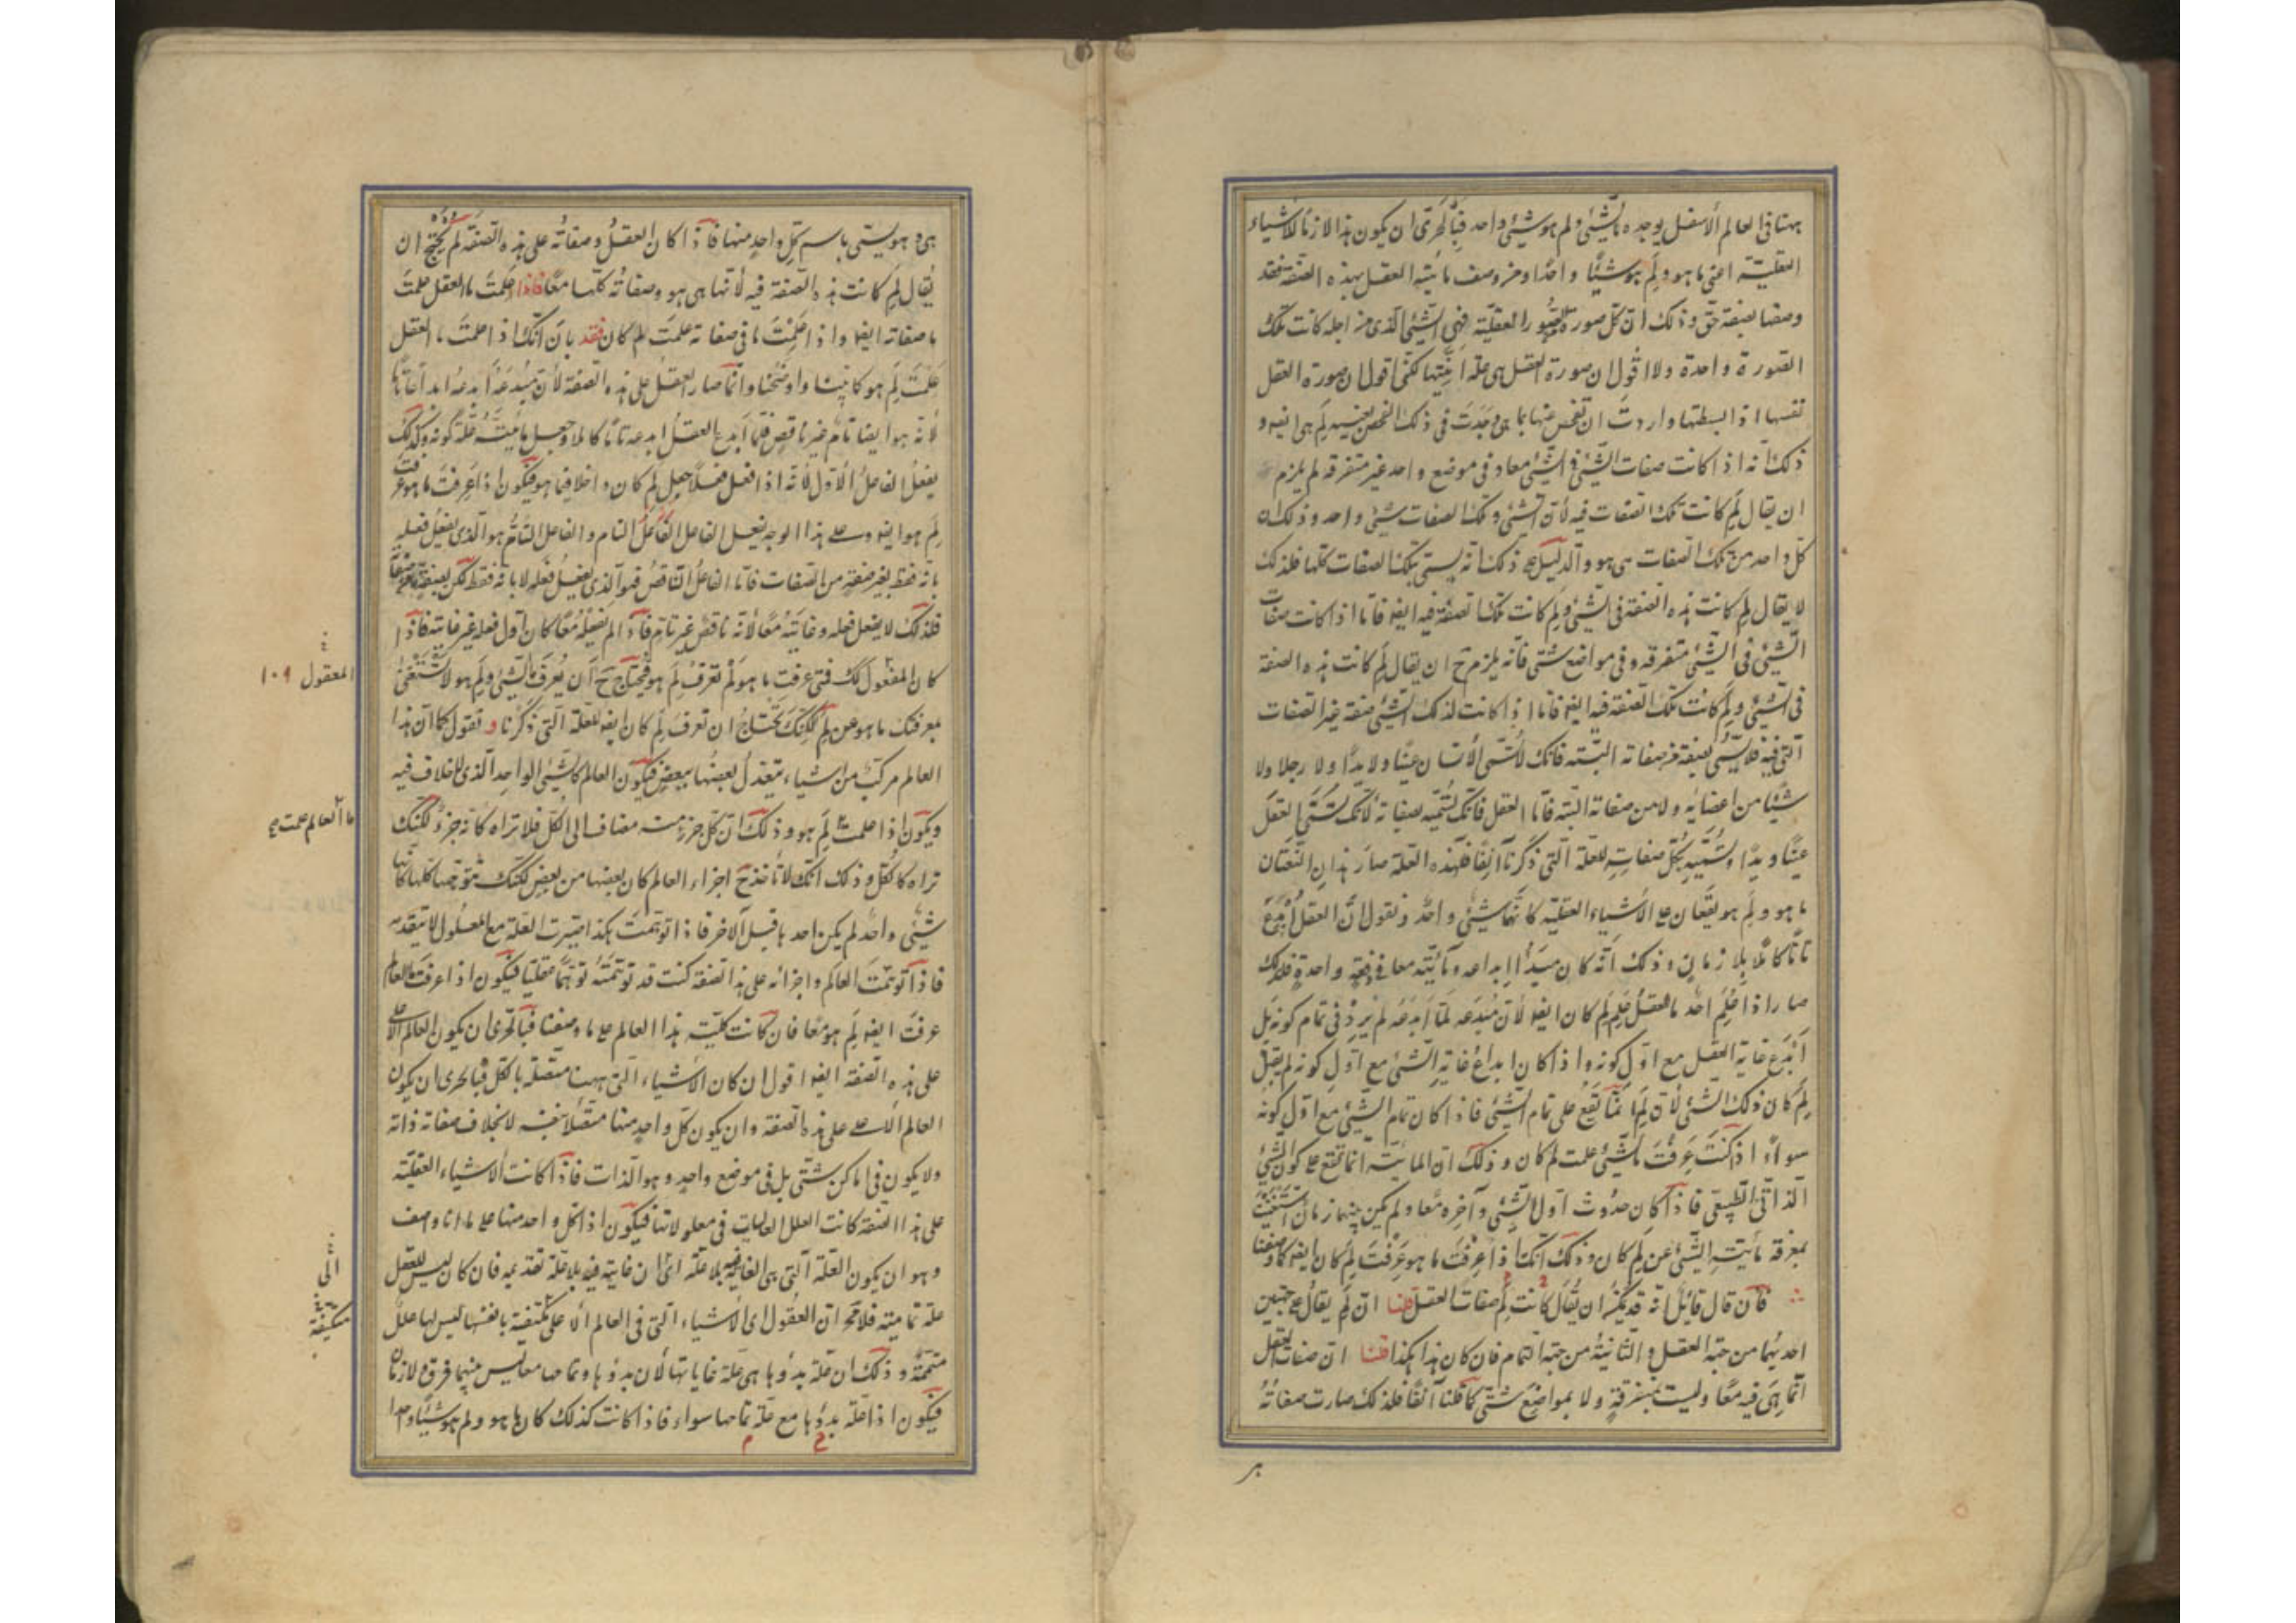 ههنا فى العالم الأسفل يوجد ما الشئ ولم هو شئ واحد فبالحرى ان يكون هذا لازما للاشياء
العقلية اعنى ما هو ولم هو شيئا واحدا ومن وصف مائية العقل بهذه الصفة فقد
وصفها بصفة حق وذلك ان كل صورة من الصور العقلية فهى الشئ الذى من اجله كانت تلك
الصورة واحدة ولا اقول ان صورة العقل هى علة انيتها لكنى اقول ان صورة العقل
نفسها اذا بسطتها واردت ان تفحص عنها بما هى وجدت فى ذلك الفحص بعينه لم هى ايضا و
ذلك انه اذا كانت صفات الشئ فى الشئ معا وفى موضع واحد غير متفرقة لم يلزم
ان يقال لم كانت تلك الصفات فيه لأن الشئ وتلك الصفات شئ واحد وذلك ان
كل واحد من تلك الصفات هى هو والدليل على ذلك انه يسمى بتلك الصفات كلها فلذلك
لا يقال لم كانت هذه الصفة فى الشئ ولم كانت تلك الصفة فيه ايضا فاما اذا كانت صفات
الشئ فى الشئ متفرقة وفى مواضع شتى فانه يلزم ح ان يقال لم كانت هذه الصفة
فى الشئ ولم كانت تلك الصفة فيه ايضا فاما اذا كانت لذلك الشئ صفة غير الصفات
التى فيه فلا يسمى بصفة من صفاته البتة فانك لا تسمى الانسان عينا ولا يدا ولا رجلا ولا
شيئا من اعضائه ولا من صفاته البتة فاما العقل فانك تسميه بصفاته لانك تسمى العقل
عينا ويدا وتسميه بكل صفاته للعلة التى ذكرنا آنفا فلهذه العلة صار هذان النعتان
ما هو ولم هو يقعان على الأشياء العقلية كانهما شئ واحد ونقول ان العقل أبدع
تاما كاملا بلا زمان وذلك انه كان مبدأ ابداعه ومائيته معا فى دفعة واحدة فلذلك
صار اذا علم احد ما العقل علم لم كان ايضا لأن مبدعه لما أبدعه لم يرو فى تمام كونه بل
أبدع غاية العقل مع اول كونه واذا كان ابداع غاية الشئ مع اول كونه لم يقل
لم كان ذلك الشئ لأن لم انما تقع على تمام الشئ فاذا كان تمام الشئ مع اول كونه
سواء اذا كنت عرفت ما الشئ علمت لم كان وذلك ان المائية انما تقع على كون الشئ
الذاتى الطبيعى فاذا كان حدوث اول الشئ وآخره معا ولم يكن بينهما زمان استغنيت
بمعرفة مائية الشئ عن لم كان وذلك انك اذا عرفت ما هو عرفت لم كان ايضا كما وصفنا
فان قال قائل انه قد يمكن ان يقال لم كانت صفات العقل قلنا ان لم يقال على جهتين
احديهما من جهة العقل والثانية من جهة التمام فان كان هذا هكذا قلنا ان صفات العقل
انما هى فيه معا وليست بمتفرقة ولا بمواضع شتى كما قلنا آنفا فلذلك صارت صفاته
هى هو
هى وهو يسمى باسم كل واحد منها فاذا كان العقل وصفاته على هذه الصفة لم يحتج ان
يقال لم كانت هذه الصفة فيه لأنها هى هو وصفاته كلها معا فاذا علمت ما العقل علمت
ما صفاته ايضا واذا علمت ما فى صفاته علمت لم كان فقد بان انك اذا علمت ما العقل
علمت لم هو كما بينا واوضحنا وانما صار العقل على هذه الصفة لأن مبدعه أبدعه ابداعا تاما
لانه هو ايضا تام غير ناقص فلما أبدع العقل ابدعه تاما كاملا وجعل مائيته علة كونه وكذلك
يفعل الفاعل الأول لأنه اذا فعل فعلا جعل لم كان داخلا فيما هو فيكون اذا عرفت ما هو عرفت
لم هو ايضا وعلى هذا الوجه يفعل الفاعل التام والفاعل التام هو الذى يفعل فعله
بانه فقط بغير صفة من الصفات فاما الفاعل الناقص فهو الذى يفعل فعله لا بانه فقط لكن بصفة ما من صفاته
فلذلك لا يفعل فعله وغايته معا لأنه ناقص غير تام فاذا لم يفعله معا كان اول فعله غير غايته فاذا
كان المفعول كذلك فمتى عرفت ما هو لم تعرف لم هو فتحتاج ح أن يعرف ما الشئ ولم هو لا تستغنى
بمعرفتك ما هو عن لم لكنك تحتاج ان تعرف لم كان ايضا للعلة التى ذكرنا و نقول كما ان هذا
العالم مركب من اشياء يتعدل بعضها ببعض فيكون العالم كالشئ الواحد الذى لا خلاف فيه
ويكون اذا علمت لم هو وذلك ان كل جزء منه مضاف الى الكل فلا تراه كانه جزء لكنك
تراه كالكل وذلك انك لا تأخذ ح اجزاء العالم كان بعضها من بعض لكنك تتوهمها كلها كانها
شئ واحد لم يكن احدها قبل الآخر فاذا توهمت هكذا صيرت العلة مع المعلول لا تتقدمه
فاذا توهمت العالم واجزائه على هذا الصفة كنت قد توهمته توهما عقليا فيكون اذا عرفت ما العالم
عرفت ايضا لم هو معا فان كانت كلية هذا العالم على ما وصفنا فبالحرى ان يكون العالم الأعلى
على هذه الصفة ايضا اقول ان كان الأشياء التى ههنا متصلة بالكل فبالحرى ان يكون
العالم الأعلى على هذه الصفة وان يكون كل واحد منها متصلا بنفسه لا تخلاف صفاته ذاته
ولا يكون فى اماكن شتى بل فى موضع واحد وهو الذات فاذا كانت الاشياء العقلية
على هذا الصفة كانت العلل العاليات فى معلولاتها فيكون اذا كل واحد منها على ما انا واصف
وهو ان يكون العلة التى هى الغاية فيه بلا علة اى ان غايته فيه بلا علة تقدمه فان كان ليس للعقل
علة تمامية فلا محة ان العقول اى الأشياء التى فى العالم الأعلى مكتفية بانفسها ليس لها علل
متممة وذلك ان علة بدوها هى علة غاياتها لأن بدوها وتمامها معا ليس بينهما فرق ولا زمان
فيكون اذا علة بدوها مع علة تمامها سواء فاذا كانت كذلك كان ما هو ولم هو شيئا واحدا
المعقول ١٠٩
ما العالم علمت